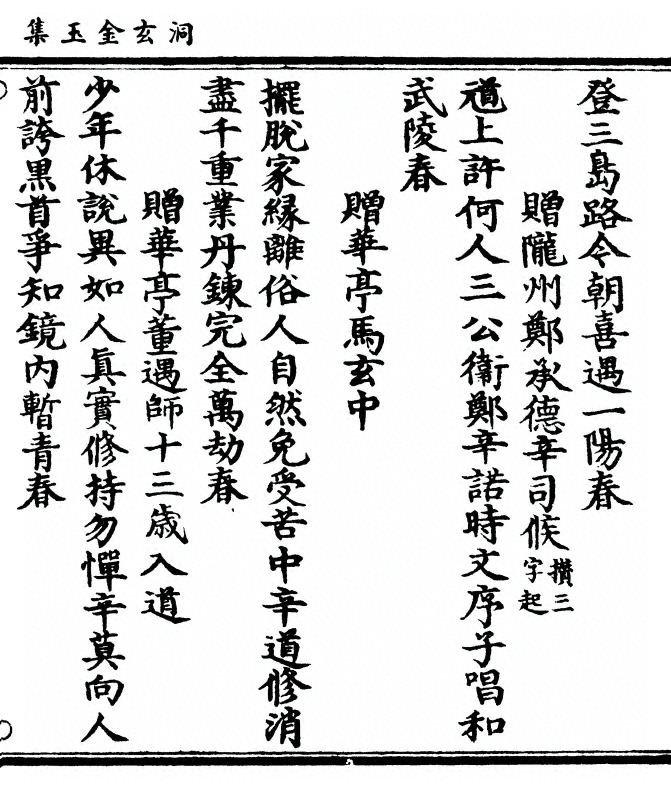 洞玄金玉集
登三島路今朝喜遇一陽春
贈隴州鄭承德辛司候攢三字起
道上許何人三公衛鄭辛諾時文序子唱和
武陵春
贈華亭馬玄中
擺脫家緣離俗人自然免受苦中辛道修消
盡千重業丹鍊完全萬劫春
贈華亭董遇師十三歲入道
少年休說異如人眞實修持勿憚辛莫向人
前誇黑首爭知鏡內暫青春